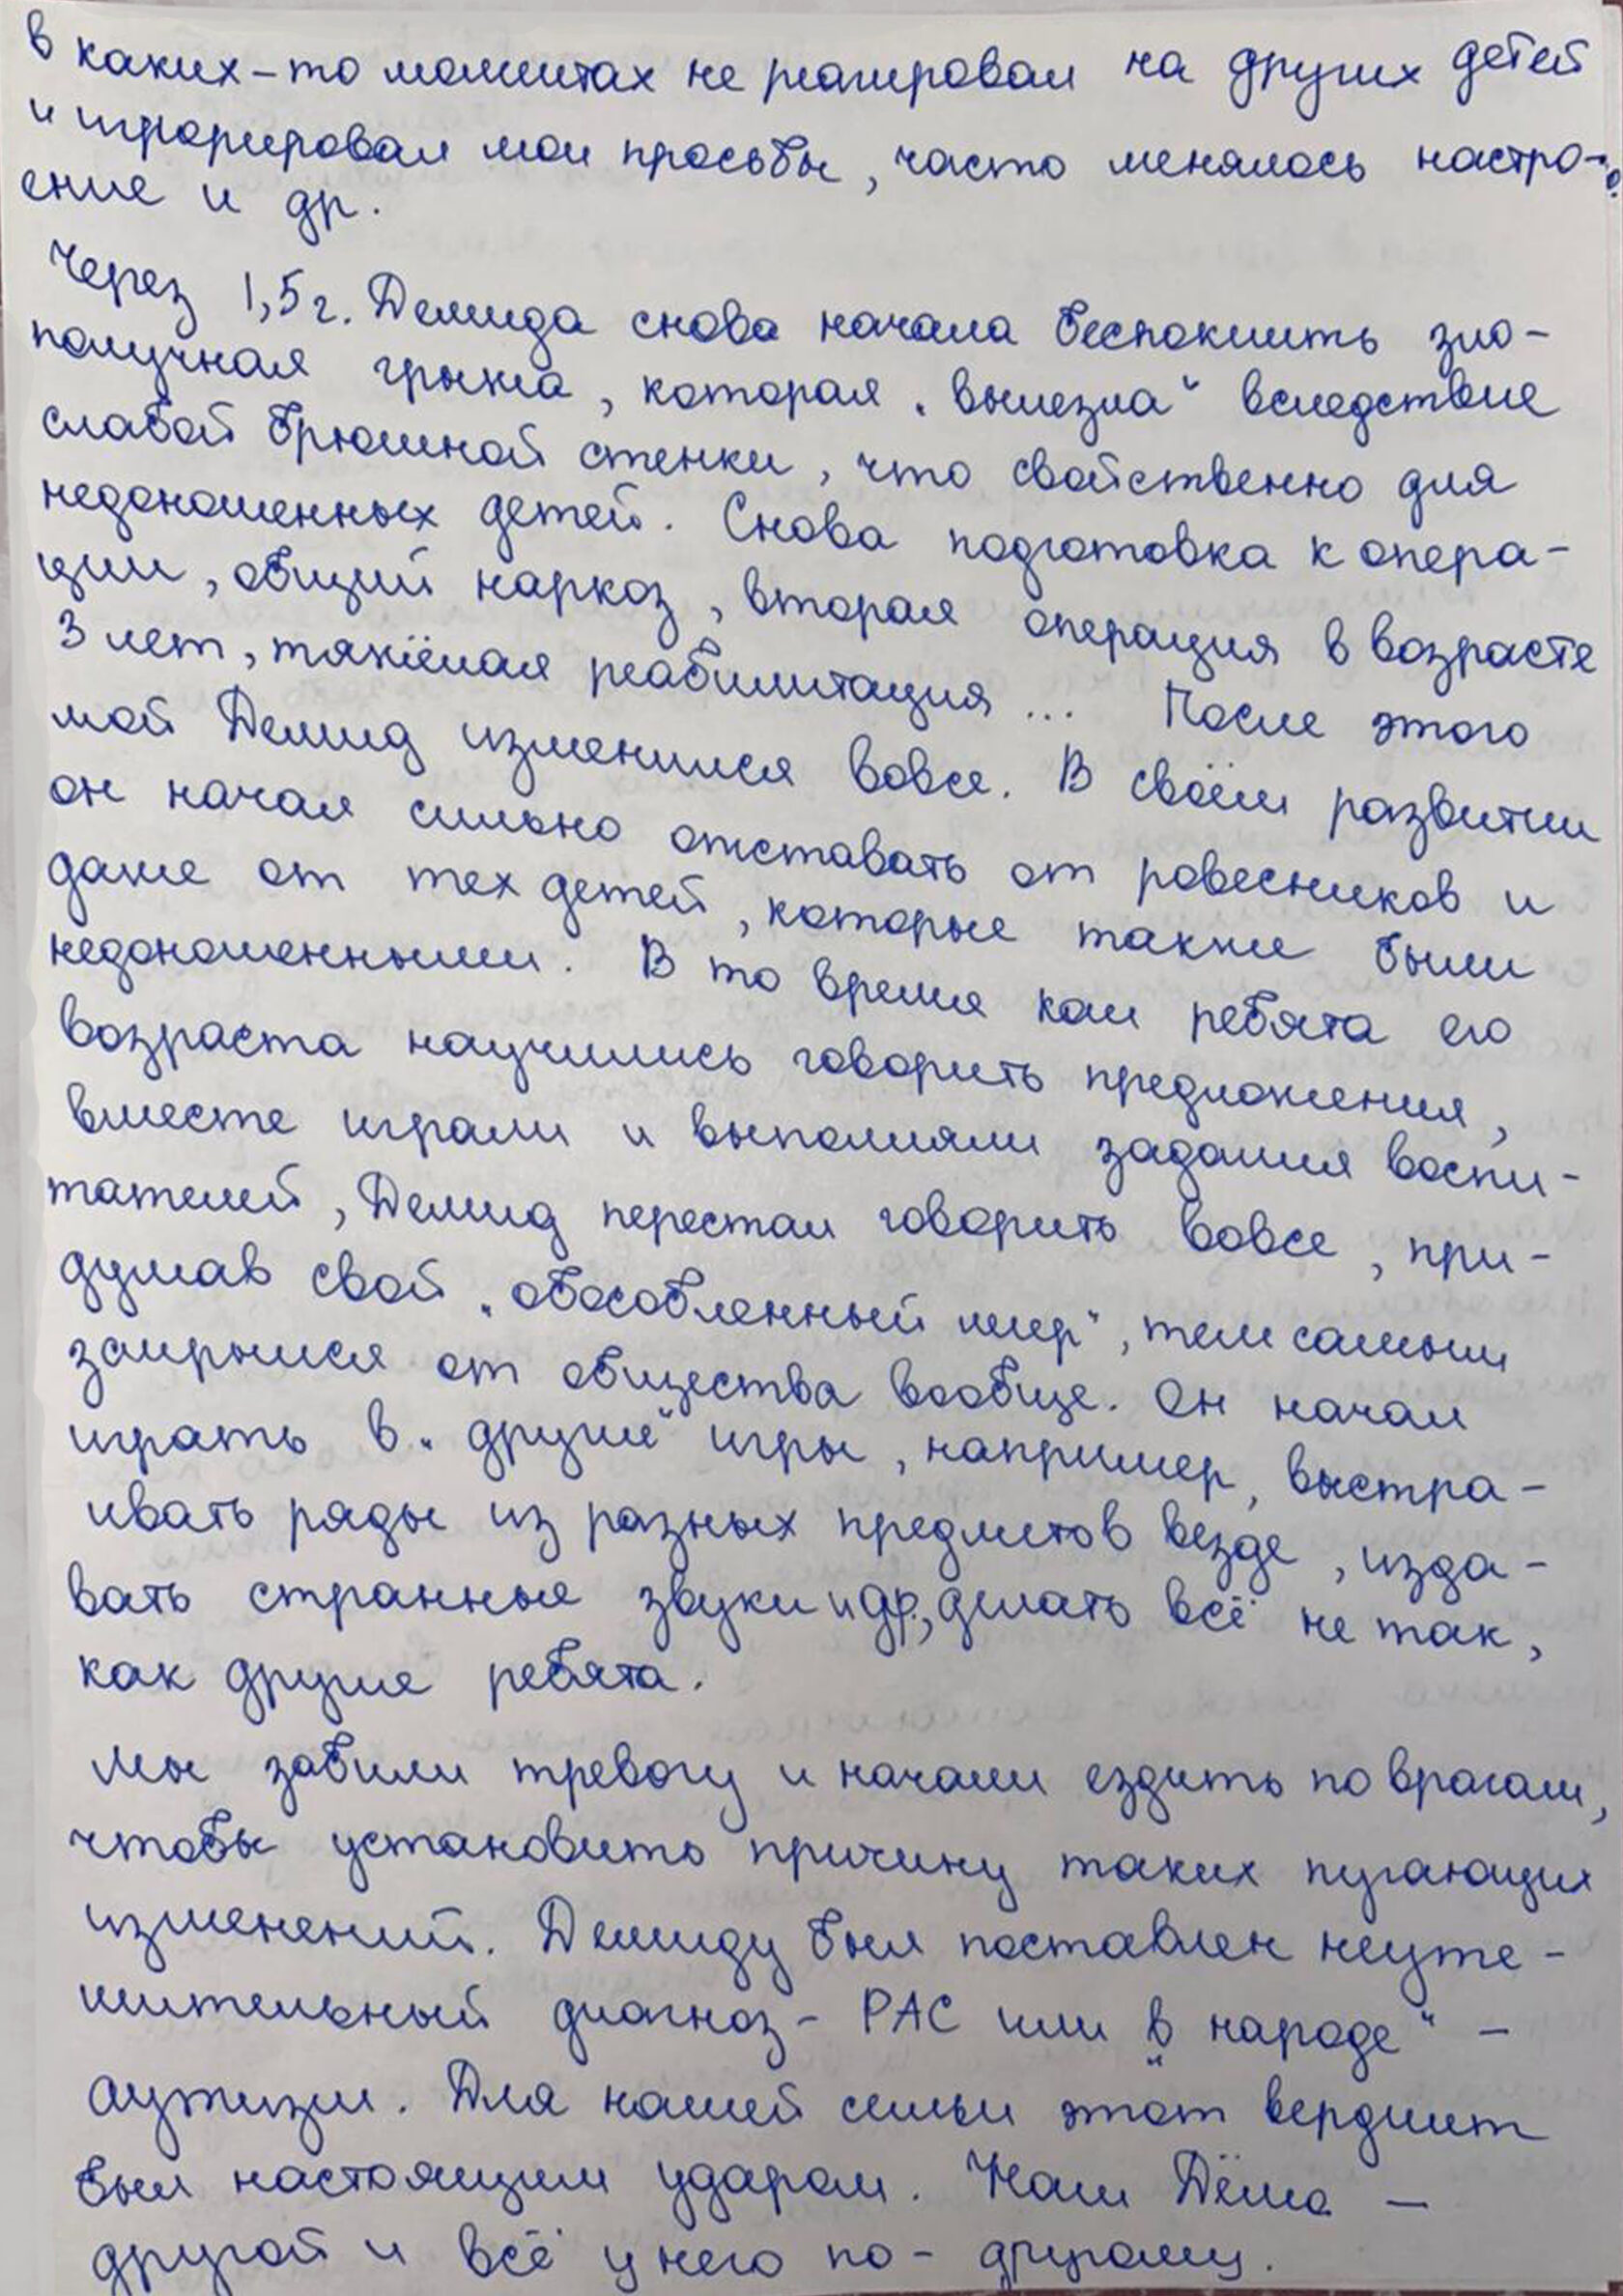 в каких-то моментах не реагировал на других детей
и игнорировал мои просьбы, часто менялось настро-
ение и др.
Через 1,5 г. Демида снова начала беспокоить зло-
получная грыжа, которая „вылезла“ вследствие
слабой брюшной стенки, что свойственно для
недоношенных детей. Снова подготовка к опера-
ции, общий наркоз, вторая операция в возрасте
3 лет, тяжёлая реабилитация... После этого
мой Демид изменился вовсе. В своём развитии
он начал сильно отставать от ровесников и
даже от тех детей, которые также были
недоношенными. В то время как ребята его
возраста научились говорить предложения,
вместе играли и выполняли задания воспи-
тателей, Демид перестал говорить вовсе, при-
думав свой „обособленный мир“, тем самым
закрылся от общества вообще. Он начал
играть в „другие“ игры, например, выстра-
ивать ряды из разных предметов везде, изда-
вать странные звуки и др., делать всё не так,
как другие ребята.
Мы забили тревогу и начали ездить по врачам,
чтобы установить причину таких пугающих
изменений. Демиду был поставлен неуте-
шительный диагноз - РАС или „в народе“ -
аутизм. Для нашей семьи этот вердикт
был настоящим ударом. Наш Дёма -
другой и всё у него по-другому.